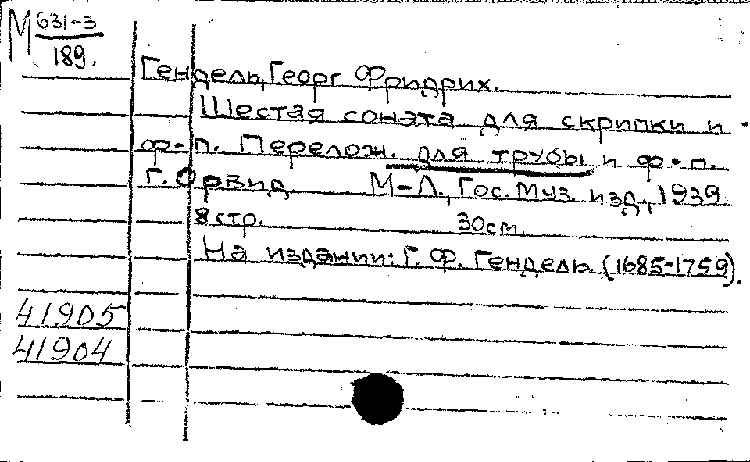 М 631-3
189.
Гендель, Георг Фридрих.
Шестая соната для скрипки и
ф-п. Перелож. для трубы и ф-п.
Г. Орвид. М-Л., Гос. муз. изд., 1939.
8 стр. 30 см.
На издании: Г. Ф. Гендель (1685-1759).
41905
41904